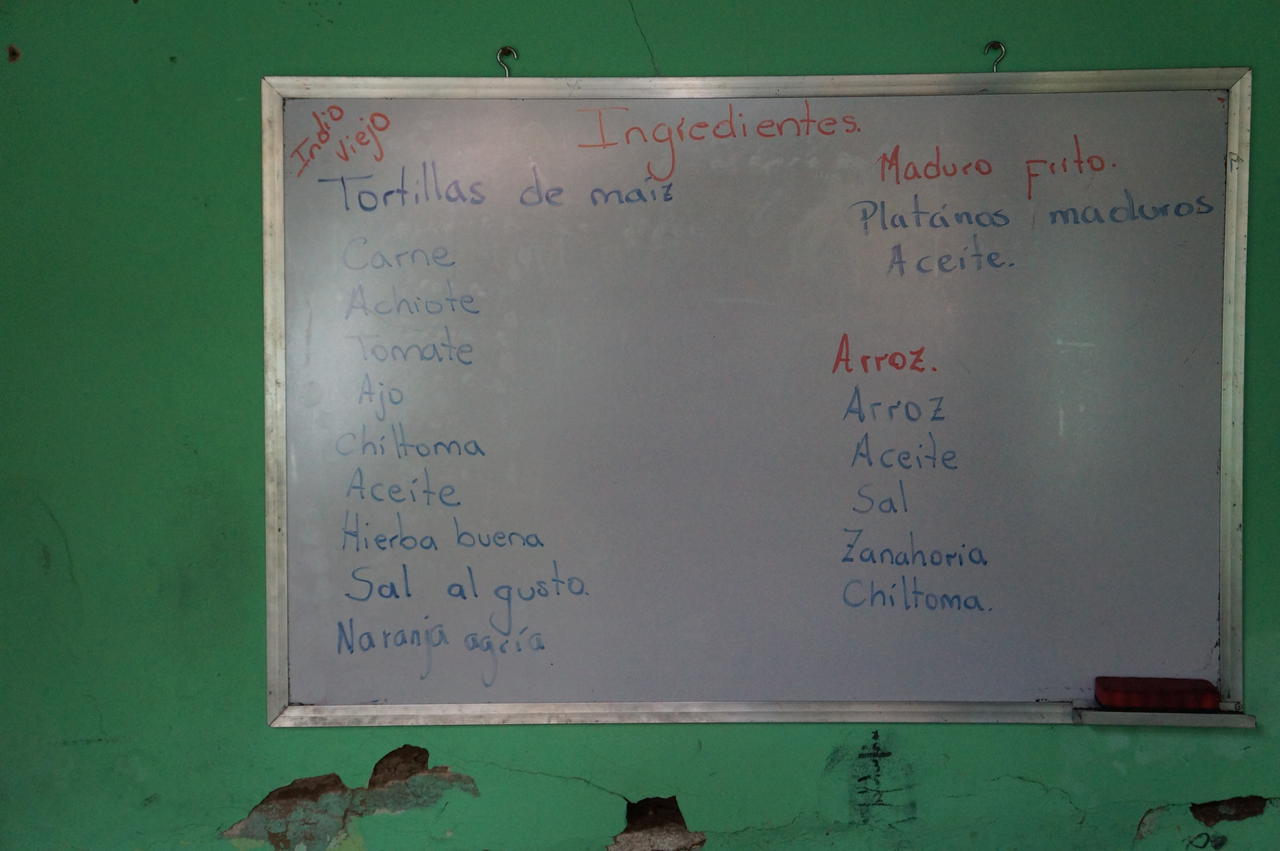 Ingredientes.
Indio
viejo
Tortillas de maíz
Carne
Achiote
Tomate
Ajo
Chiltoma
Aceite
Hierba buena
Sal al gusto.
Naranja agría
Maduro frito.
Platános maduros
Aceite.
Arroz.
Arroz
Aceite
Sal
Zanahoria
Chiltoma.